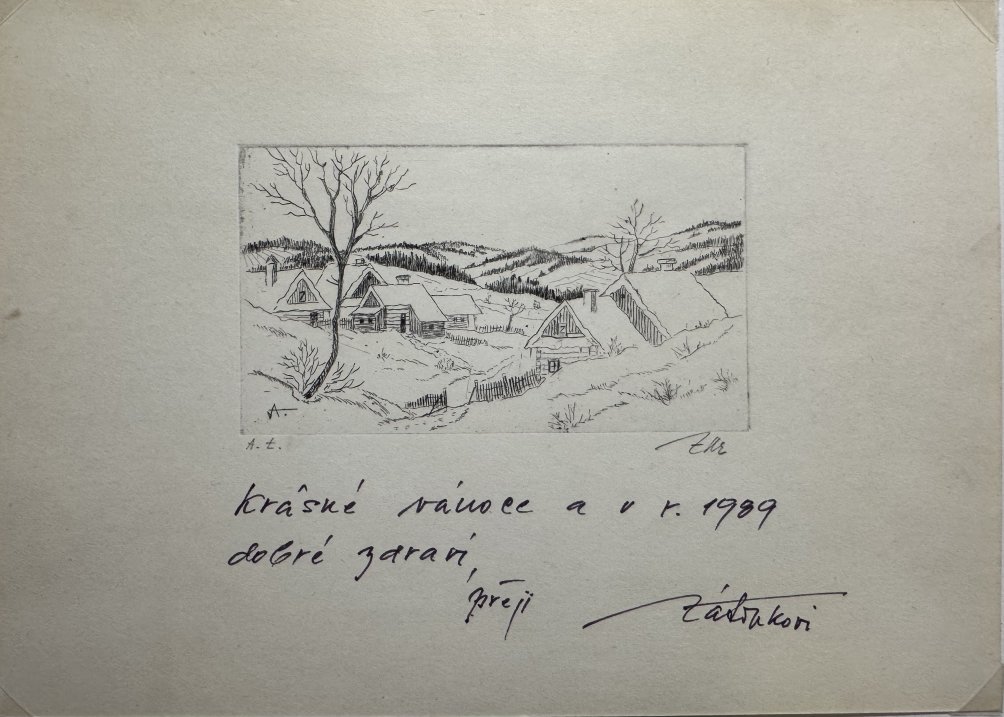 A.
A. Z.
krásné vánoce a v r. 1989
dobré zdraví,
přeji
Zátinkovi